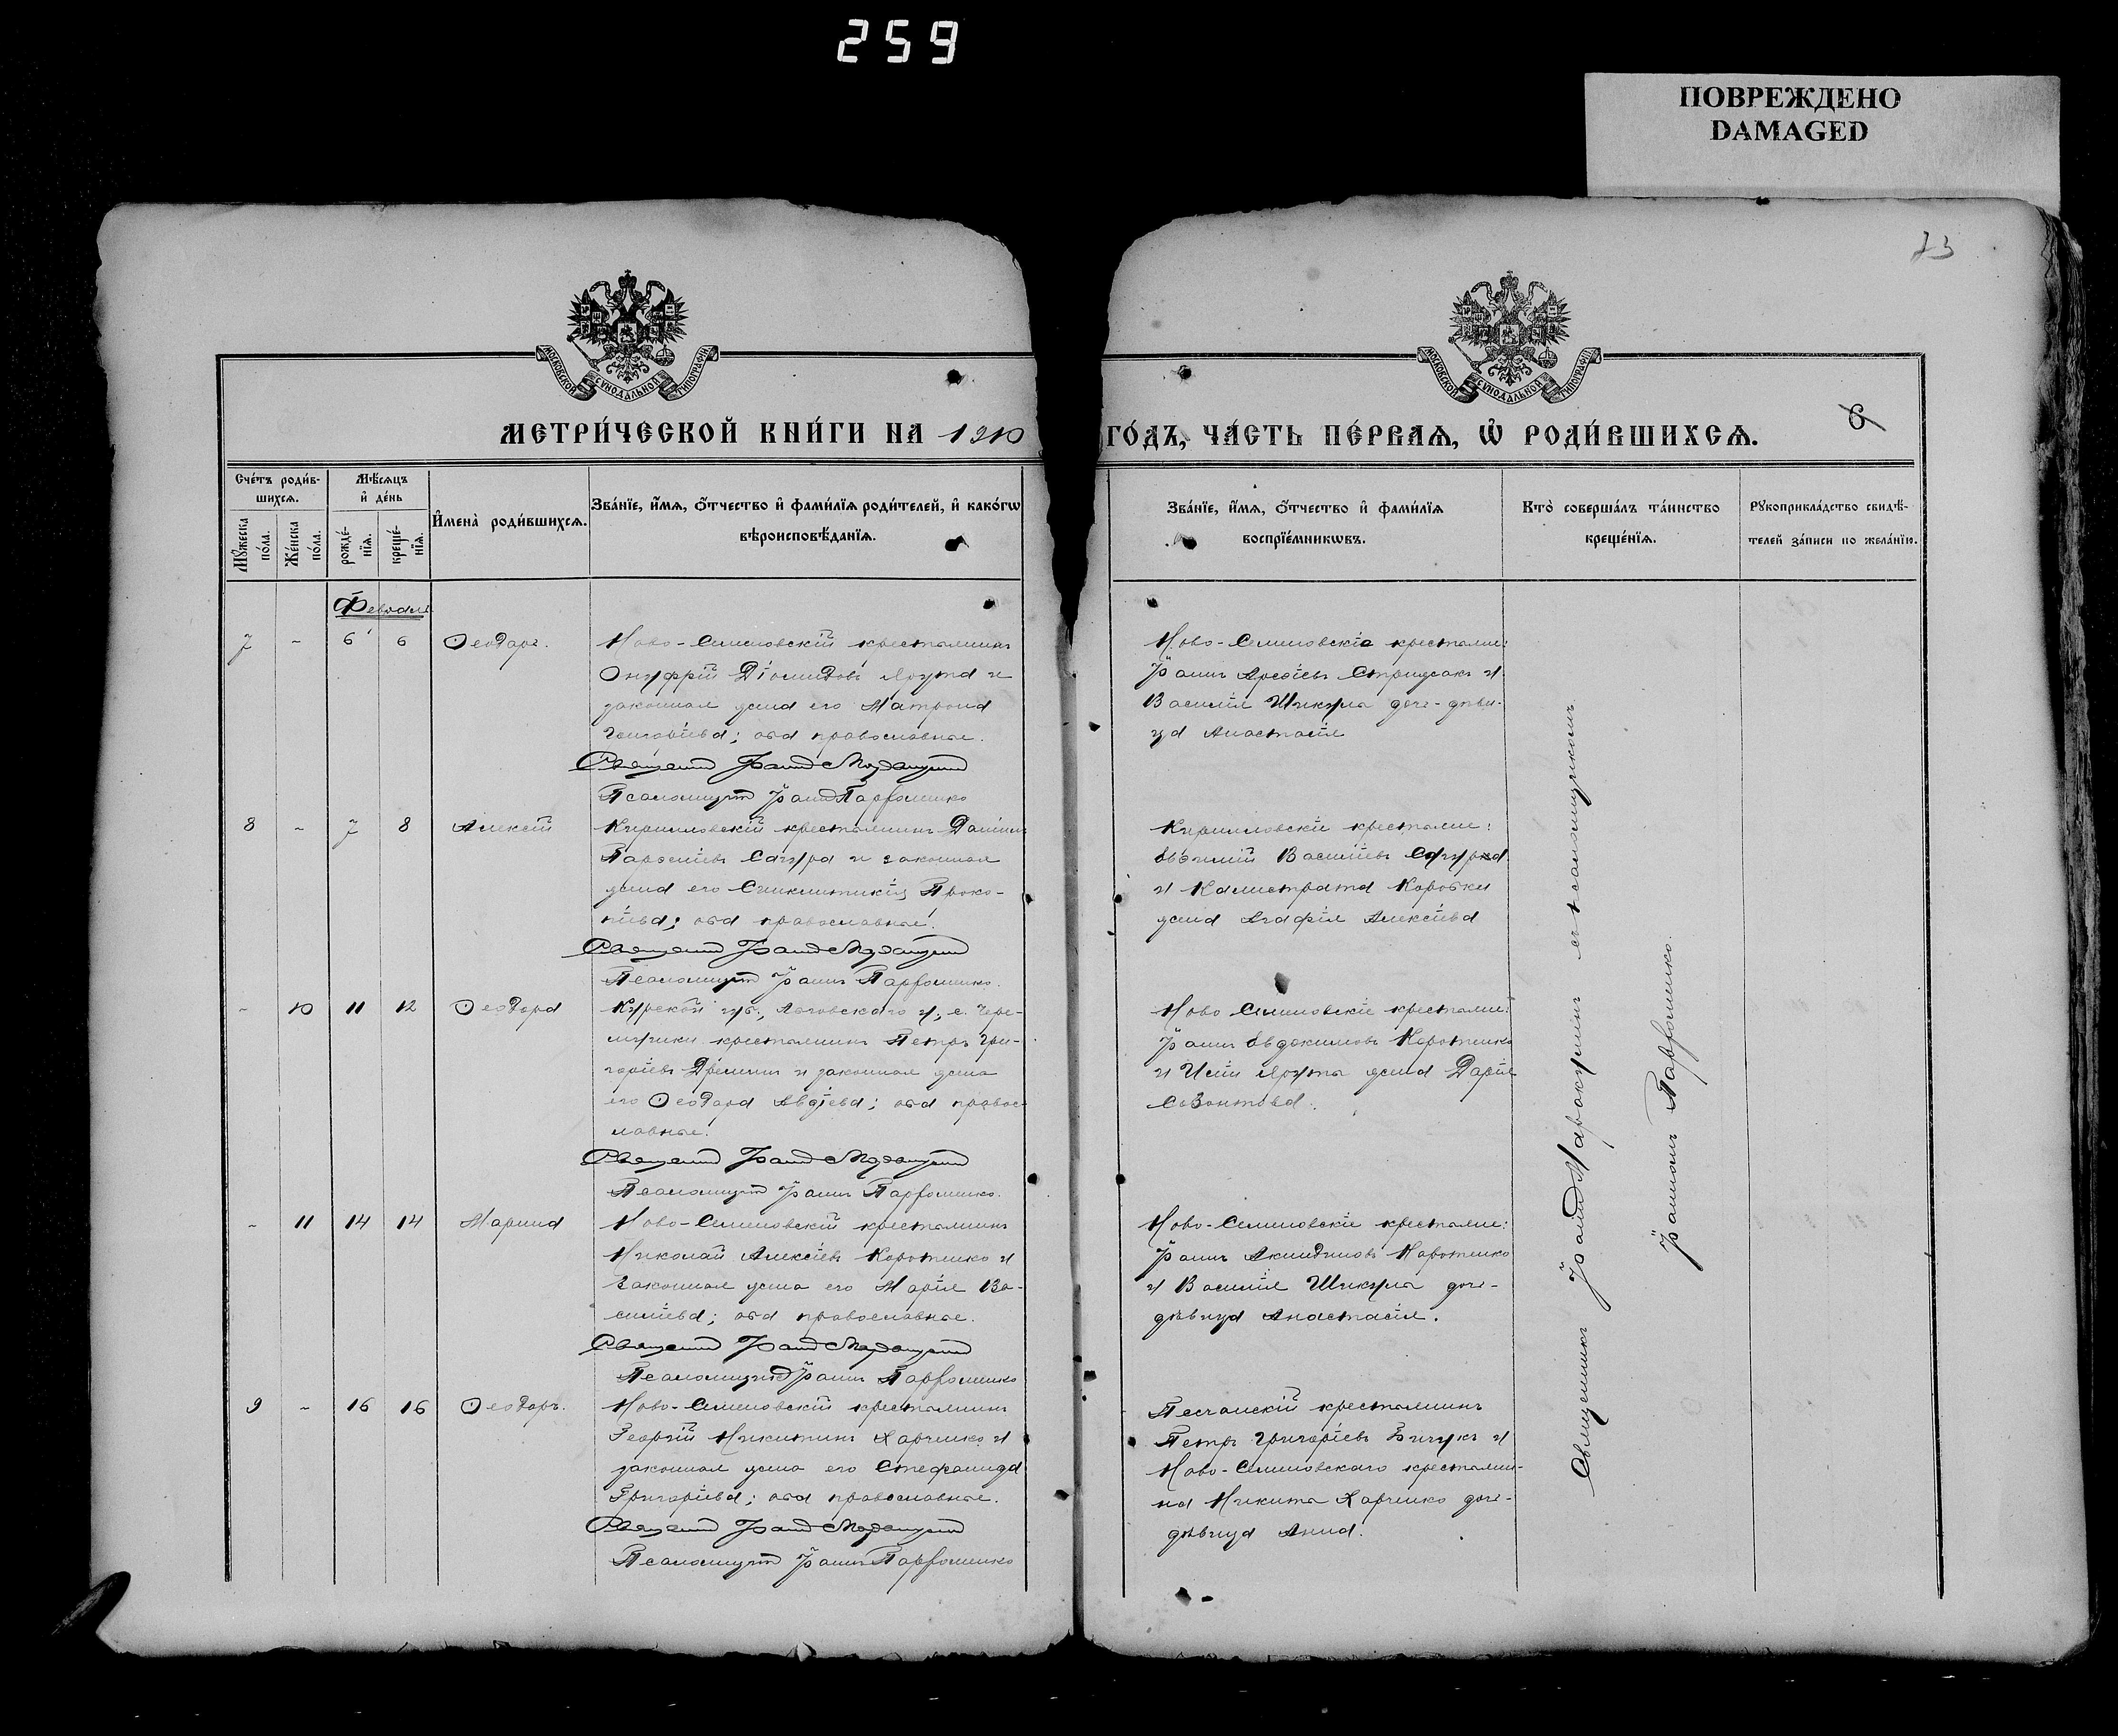 259
ПОВРЕЖДЕНО
DAMAGED
73
МОСКОВСКОЙ СѴНОДАЛЬНОЙ ТИПОГРАФІИ
МОСКОВСКОЙ СѴНОДАЛЬНОЙ ТИПОГРАФІИ
МЕТРИ́ЧЕСКОЙ КНИ́ГИ НА 1910 ГО́ДЪ, ЧА́СТЬ ПЕ́РВАѦ, Ѡ҆ РОДИ́ВШИХСѦ.
6
Сче́тъ роди́в-
шихсѧ.
Мꙋжеска по́ла.
Же́нска по́ла.
Мѣ́сѧцъ
и҆ де́нь
рожде́-
нїѧ.
креще́-
нїѧ.
И҆мена̀ роди́вшихсѧ.
Зва́нїе, и҆́мѧ, ѻ҆́тчество и҆ фами́лїѧ роди́телей, и҆ како́гѡ
вѣроисповѣ́данїѧ.
Зва́нїе, и҆́мѧ, ѻ҆́тчество и҆ фами́лїѧ
воспрїе́мникѡвъ.
Кто̀ соверша́лъ та́инство
креще́нїѧ.
Рꙋкоприкла́дство свидѣ́-
телей за́писи по жела́нїю.
Февраль
7 - 6 6 Ѳеодоръ.
Ново-Семеновскій крестьянинъ
Онуфрій Діомидовъ и
законная жена его Матрона
Григоріева; оба православные.
Священникъ Іоаннъ
Псаломщикъ Іоаннъ Парфоменко
Ново-Семеновскіе крестьяне:
Іоаннъ и
Василія Шикулы дочь-деви-
ца Анастасія
8 - 7 8 Алексій
Кирилловскій крестьянинъ Даніилъ
и законная
жена его Синклитикія Проко-
піева; оба православные.
Священникъ Іоаннъ
Псаломщикъ Іоаннъ Парфоменко.
Кирилловскіе крестьяне:
Евѳимій Васильевъ
и Калистрата Коробки
жена Агафія Алексіева
- 10 11 12 Ѳеодора
Курской губ., Льговскаго у., с. Чере-
мушки крестьянинъ Петръ Гри-
горіевъ Дреминъ и законная жена
его Ѳеодора Авдіева; оба правос-
лавные.
Священникъ Іоаннъ
Псаломщикъ Іоаннъ Парфоменко.
Ново Семеновскіе крестьяне:
Іоаннъ Евдокимовъ Коротенко
и жена Дарія
- 11 14 14 Марина
Ново-Семеновскій крестьянинъ
Николай Алексіевъ Коротенко и
законная жена его Марія Ва-
силіева; оба православные.
Священникъ Іоаннъ
Псаломщикъ Іоаннъ Парфоменко
Ново-Семеновскіе крестьяне:
Іоаннъ Акиндиновъ Коротенко
и Василія Шикулы дочь-
дѣвица Анастасія.
9 - 16 16 Ѳеодоръ.
Ново-Семеновскій крестьянинъ
Георгій Никитинъ Харченко и
законная жена его Стефанида
Григоріева; оба православные.
Священникъ Іоаннъ
Псаломщикъ Іоаннъ Парфоменко
Песчанскій крестьянинъ
Петръ Григоріевъ и
Ново-Семеновскаго крестьяни-
на Никиты Харченко дочь-
дѣвица Анна.
Священникъ Іоаннъ съ псаломщикомъ
Іоанномъ Парфоменко.